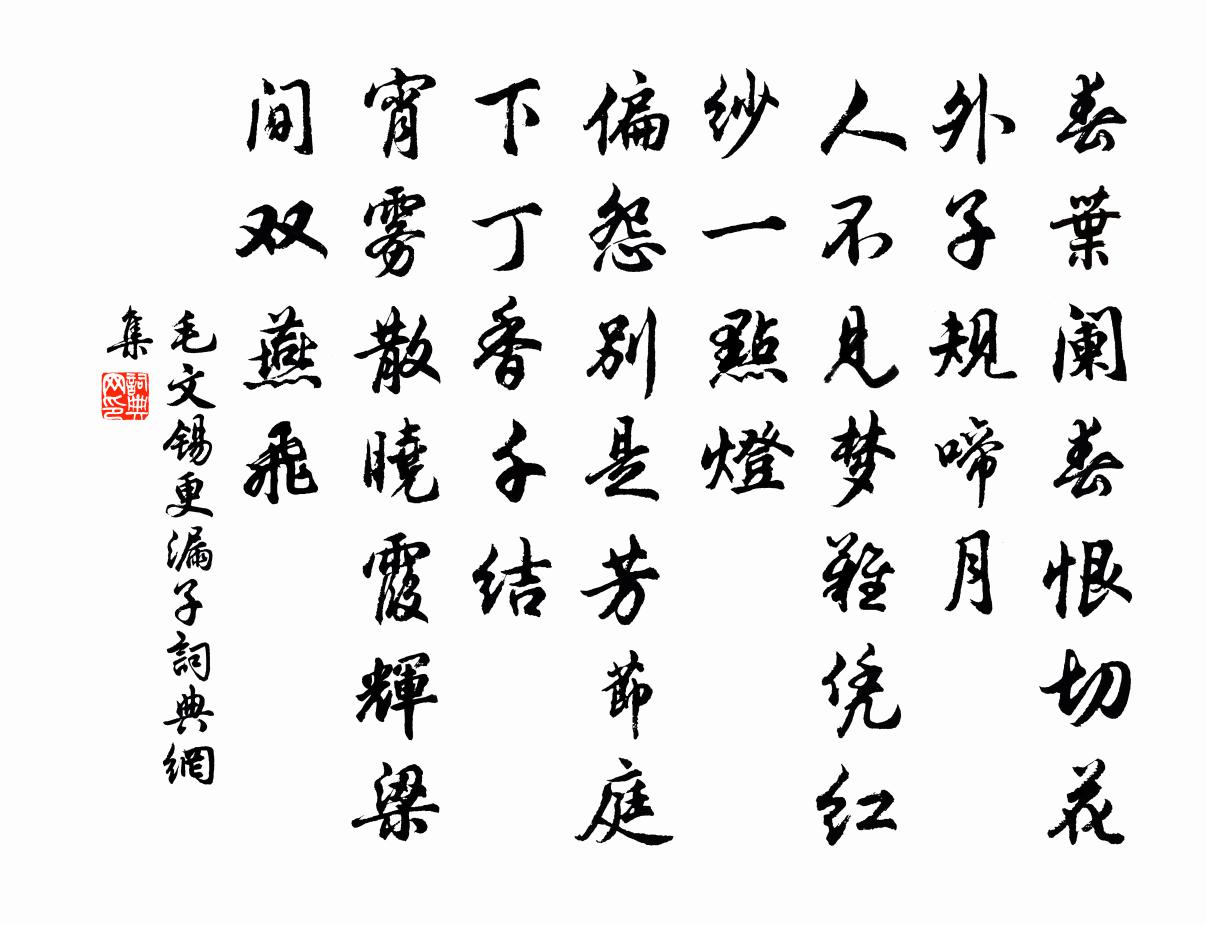 春葉阑春恨切花
外子規啼月
人不見梦難凭红
纱一點燈
偏怨别是芳節庭
下丁香千结
宵雾散曉霞輝梁
间双燕飛
毛文锡更漏子詞典網
集
詞典网印